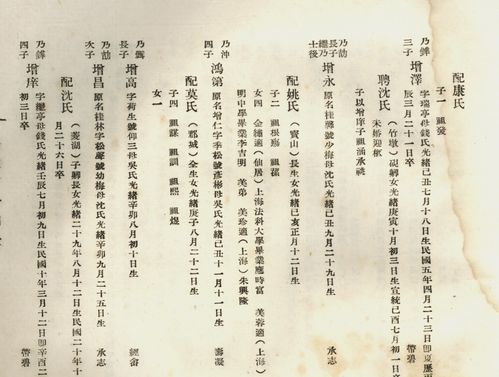 配康氏
子一 祖發
乃鏵三子 增澤 字瑞亭母錢氏光緒己丑七月十八日生民國五年四月二十三日即東歷丙辰三月二十一日卒 帶碧
聘沈氏 (竹墩)硯孵女光緒庚寅十月初三日生宣統己酉七月初一日卒未婚迎柩
子以增庠子祖涌承祧
乃喆長子繼乃士後 增永 原名桂 號少梅母沈氏光緒己丑九月二十九日生 承志
配姚氏 (寶山)長生女光緒己亥正月十二日生
子二 祖根 祖
女四 金鏽適(仙居)上海法科大學畢業應時富 芙蓉適(上海)明中學畢業李吉明 芙弟 美珍適(上海)朱興隆
乃沖四子 鴻第 原名增仁字季松號彥彬母吳氏光緒己丑十一月十一日生 壽凝
配莫氏 (郡城)全生女光緒庚子八月二十二日生
子四 祖謀 祖訓 祖熙 祖煜
女一
長子 增高 字荷生號仰三母吳氏光緒辛卯八月初十日生 經畬
乃喆次子 增昌 原名桂林字松壽號幼梅母沈氏光緒辛卯九月二十五日生 承志
配沈氏 (菱湖)子孵長女光緒二十九年八月十二日生民國二十年十月二十六日卒
乃鏵四子 增庠 字繼亭母錢氏光緒壬辰七月初九日生民國十年三月十二日即辛酉二月初三日卒 帶碧